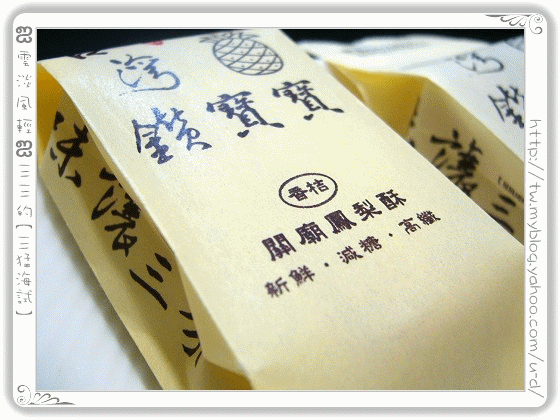 雲淡風輕
三三的【三猛海試】
灣
鑽寶寶
香桔
關廟鳳梨酥
新鮮・減糖・高纖
味
讓
三
灣
鑽
讓
三
http://tw.myblog.yahoo.com/u-d/